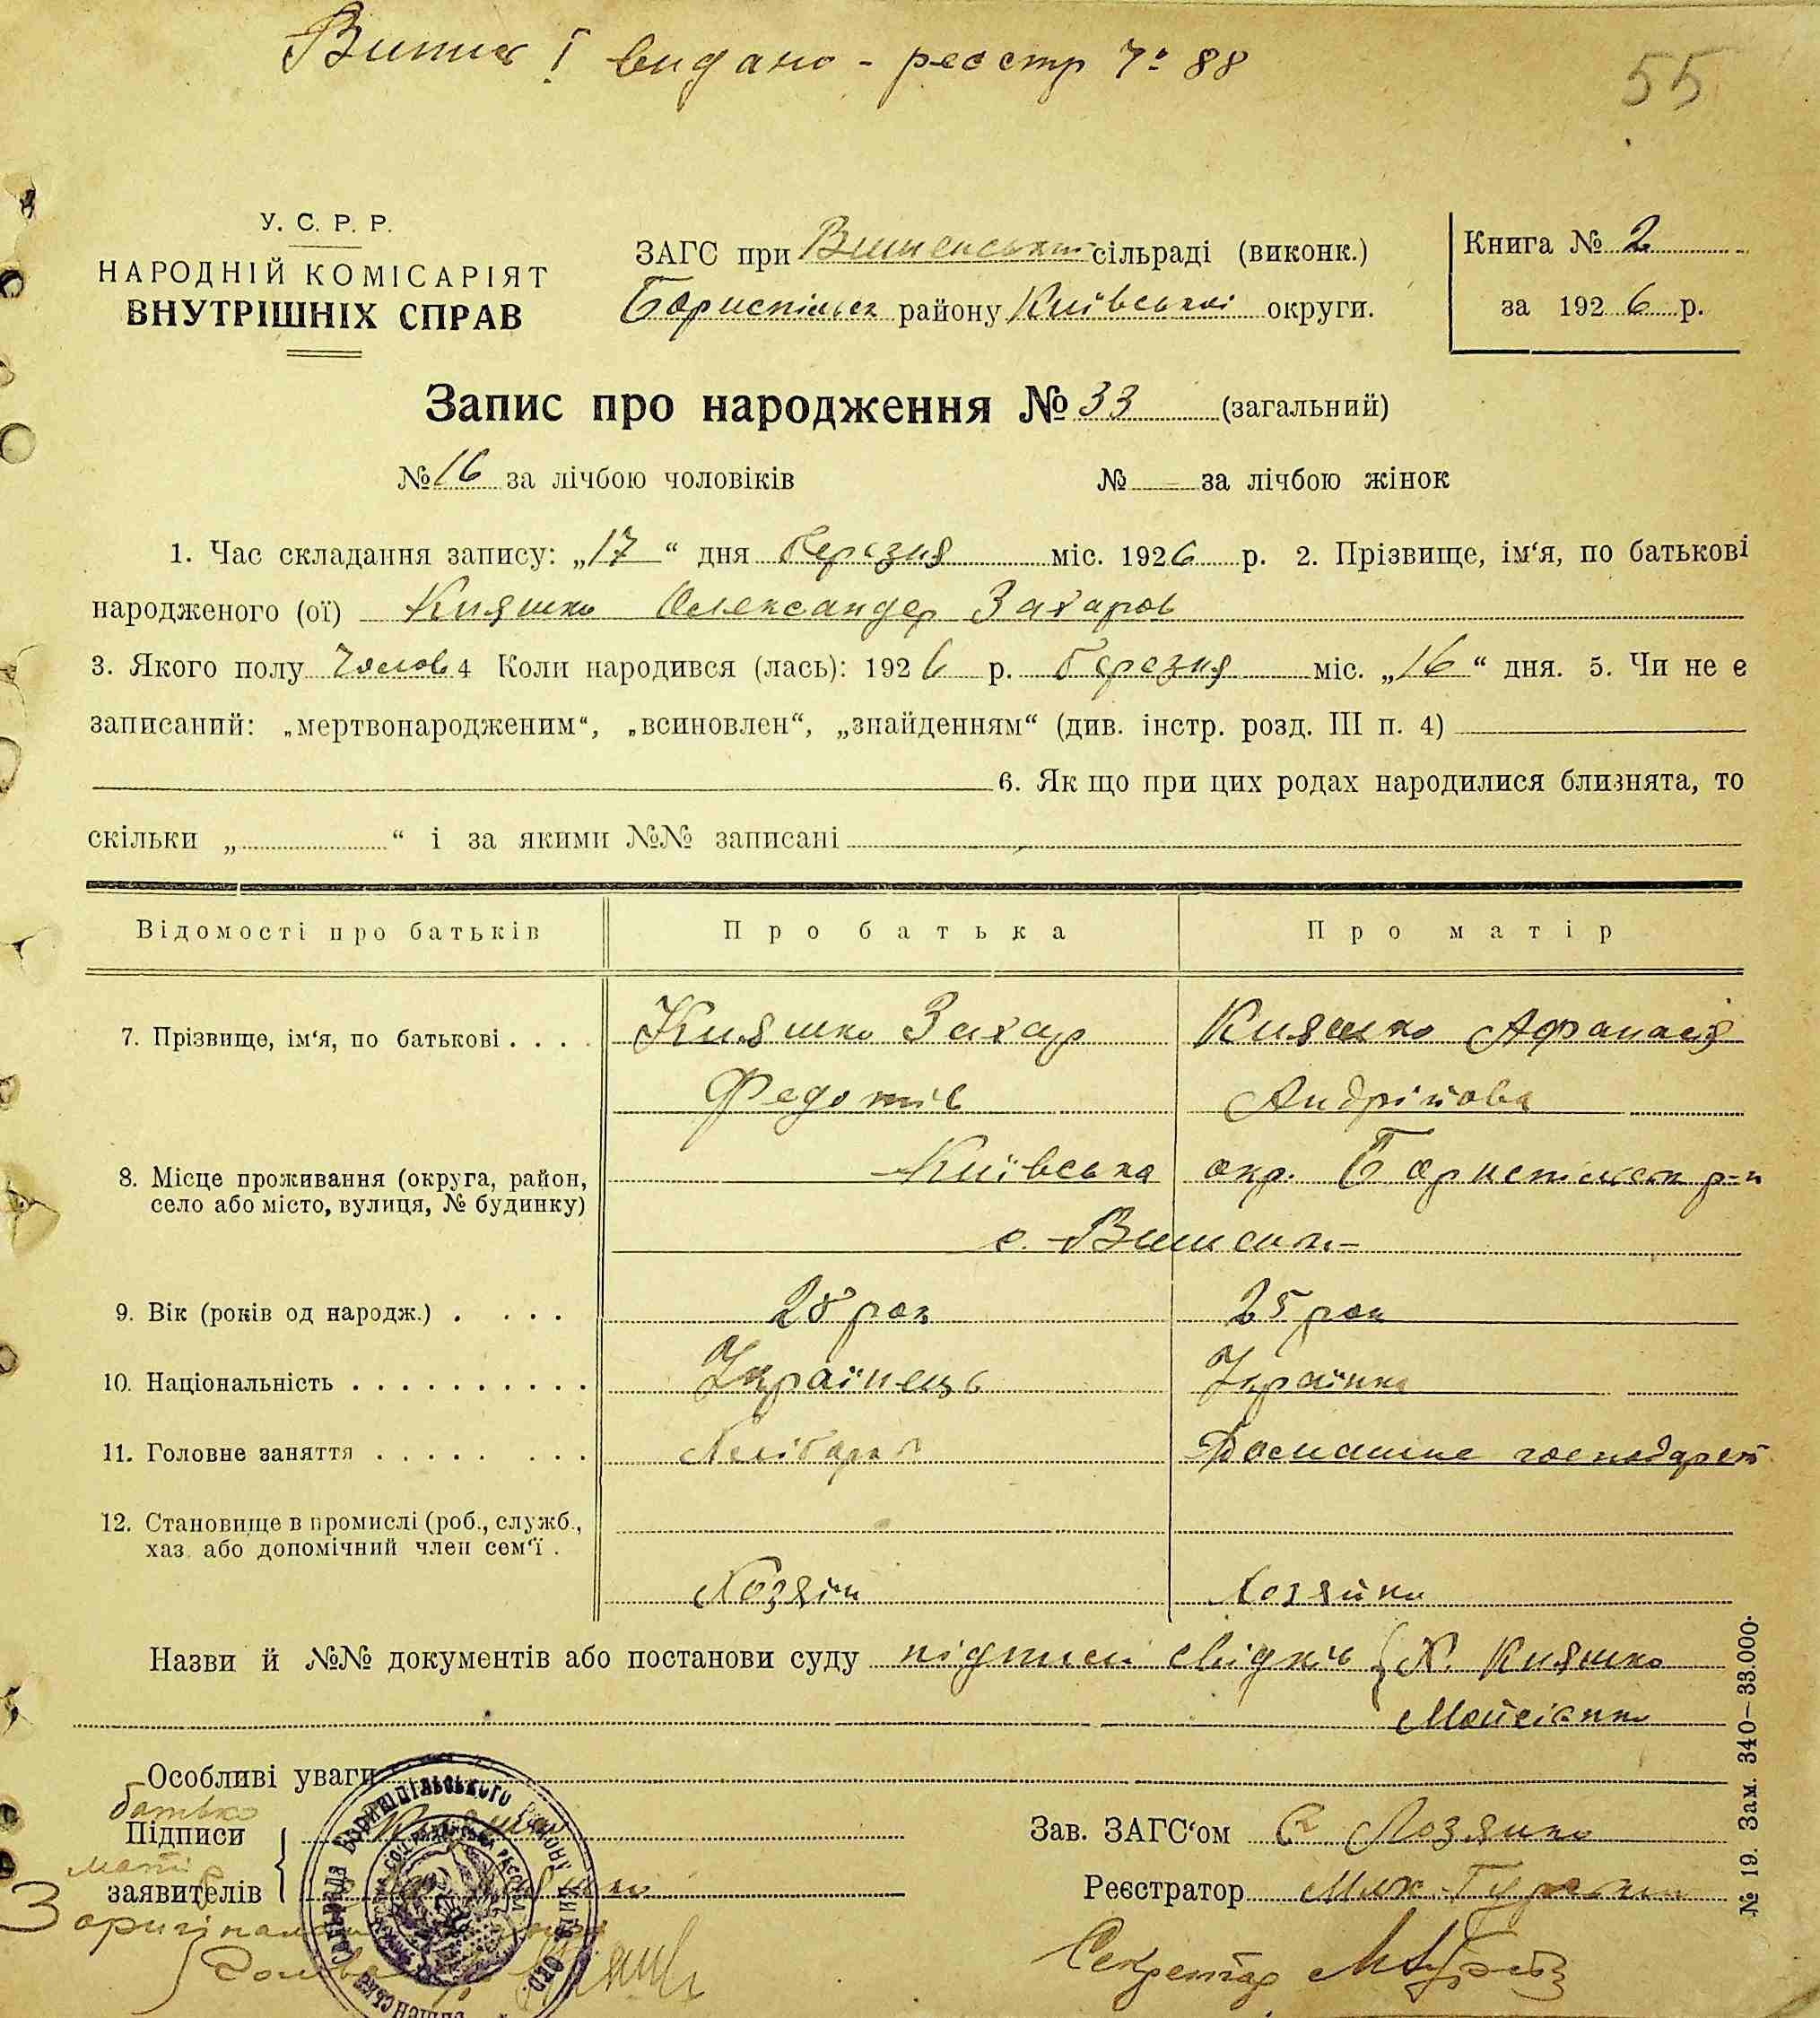 Витяг видано - реєстр № 88
55
У. С. Р. Р.
НАРОДНІЙ КОМІСАРІЯТ
ВНУТРІШНІХ СПРАВ
ЗАГС при Вишенській сільраді (виконк.)
Бориспільск району Київської округи.
Книга № 2
за 1926 р.
Запис про народження № 33 (загальний)
№ 16 за лічбою чоловіків № — за лічбою жінок
1. Час складання запису: „17“ дня березня міс. 1926 р. 2. Прізвище, ім‘я, по батькові
народженого (ої) Княшко Олександер Захаров
3. Якого полу чолов 4 Коли народився (лась): 1926 р. березня міс. „16“ дня. 5. Чи не є
записаний: „мертвонародженим“, „всиновлен“, „знайденням“ (див. інстр. розд. III п. 4)
6. Як що при цих родах народилися близнята, то
скільки „ “ і за якими №№ записані
Відомості про батьків Про батька Про матір
7. Прізвище, ім‘я, по батькові . . . . Княшко Захар Княшко Афанасія
Федотів Андрійова
8. Місце проживання (округа, район,
село або місто, вулиця, № будинку)
Київська окр. Бориспільськ р-н
с. Вишеньки
9. Вік (років од народж.) . . . . 28 рок 25 рок
10. Національність . . . . . . . . . . Українець Українка
11. Головне заняття . . . . . . . . Хлібороб Домашнє господарст
12. Становище в промислі (роб., служб.,
хаз. або допомічний член сем‘ї .
Хозяін хозяйка
Назви й №№ документів або постанови суду підписи свідків { Х. Княшко
Мойсієнко
Особливі уваги
батько
Підписи
матір
заявителів
Зав. ЗАГС‘ом Лозянко
Реєстратор
З оригіналом
Секретар
№ 19. Зам. 340—33.000.